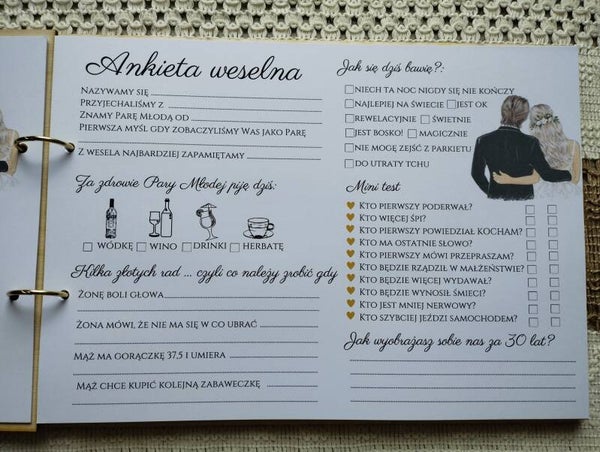 Ankieta weselna
Nazywamy się
Przyjechaliśmy z
Znamy Parę Młodą od
Pierwsza myśl gdy zobaczyliśmy Was jako Parę
Z wesela najbardziej zapamiętamy
Za zdrowie Pary Młodej piję dziś:
wódkę wino drinki herbatę
Kilka złotych rad ... czyli co należy zrobić gdy
Żonę boli głowa
Żona mówi, że nie ma się w co ubrać
Mąż ma gorączkę 37,5 i umiera
Mąż chce kupić kolejną zabaweczkę
Jak się dziś bawię?:
niech ta noc nigdy się nie kończy
najlepiej na świecie jest ok
rewelacyjnie świetnie
jest bosko! magicznie
nie mogę zejść z parkietu
do utraty tchu
Mini test
Kto pierwszy poderwał?
Kto więcej śpi?
Kto pierwszy powiedział kocham?
Kto ma ostatnie słowo?
Kto pierwszy mówi przepraszam?
Kto będzie rządził w małżeństwie?
Kto będzie więcej wydawał?
Kto będzie wynosił śmieci?
Kto jest mniej nerwowy?
Kto szybciej jeździ samochodem?
Jak wyobrażasz sobie nas za 30 lat?